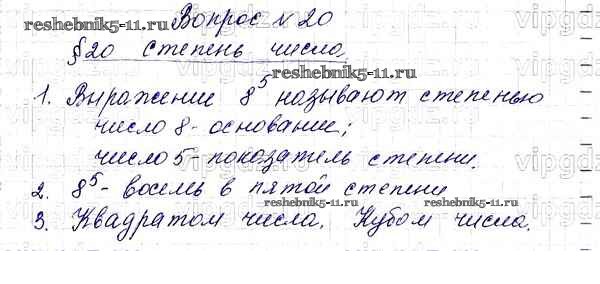 Вопрос №20
reshebnik5-11.ru
§20 степень числа.
reshebnik5-11.ru
1. Выражение 8⁵ называют степенью
число 8 - основание;
число 5 - показатель степени.
2. 8⁵ - восемь в пятой степени
reshebnik5-11.ru reshebnik5-11.ru
3. Квадратом числа. Кубом числа.